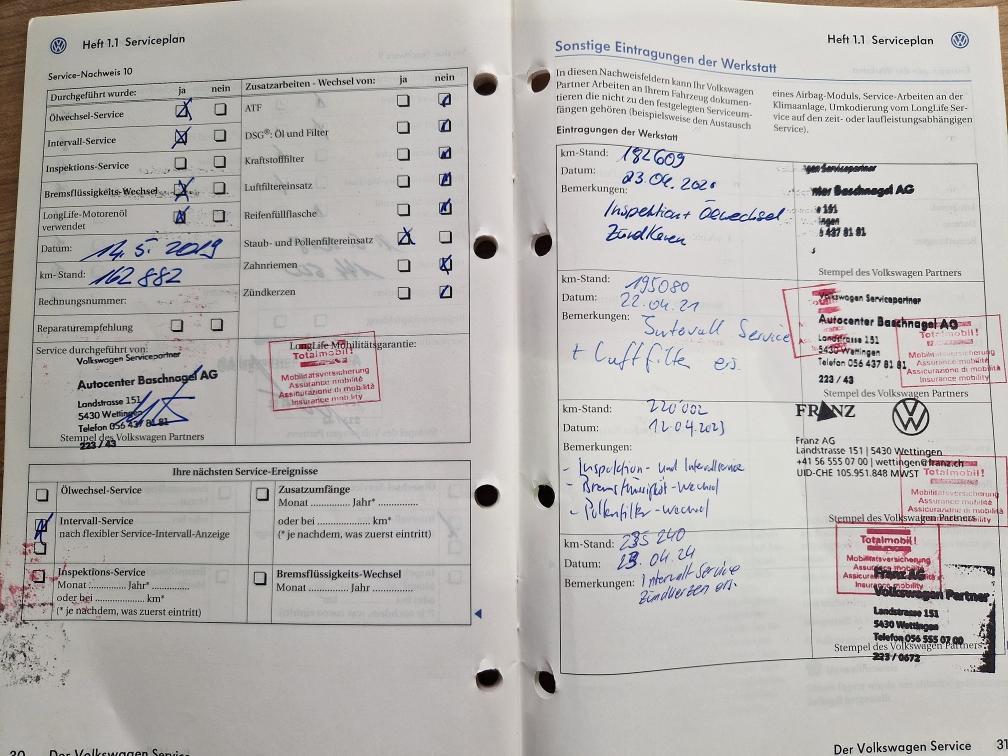 Heft 1.1 Serviceplan
Service-Nachweis 10
Durchgeführt wurde: ja nein
Ölwechsel-Service
Intervall-Service
Inspektions-Service
Bremsflüssigkeits-Wechsel
LongLife-Motorenöl
verwendet
Datum: 14.5. 2019
km-Stand: 162 882
Rechnungsnummer:
Reparaturempfehlung
Zusatzarbeiten - Wechsel von: ja nein
ATF
DSG®: Öl und Filter
Kraftstofffilter
Luftfiltereinsatz
Reifenfüllflasche
Staub- und Pollenfiltereinsatz
Zahnriemen
Zündkerzen
Service durchgeführt von:
Volkswagen Servicepartner
Autocenter Baschnagel AG
Landstrasse 151
5430 Wettingen
Telefon 056 437 81 81
Stempel des Volkswagen Partners
223 / 43
LongLife Mobilitätsgarantie:
Totalmobil!
Mobilitätsversicherung
Assurance mobilité
Assicurazione di mobilità
Insurance mobility
Ihre nächsten Service-Ereignisse
Ölwechsel-Service
Intervall-Service
nach flexibler Service-Intervall-Anzeige
Inspektions-Service
Monat .......... Jahr*..............
oder bei ........................ km*
(* je nachdem, was zuerst eintritt)
Zusatzumfänge
Monat .............. Jahr* ..............
oder bei ........................ km*
(* je nachdem, was zuerst eintritt)
Bremsflüssigkeits-Wechsel
Monat .............. Jahr ..............
Der Volkswagen Service
Heft 1.1 Serviceplan
Sonstige Eintragungen der Werkstatt
In diesen Nachweisfeldern kann Ihr Volkswagen
Partner Arbeiten an Ihrem Fahrzeug dokumen-
tieren die nicht zu den festgelegten Serviceum-
fängen gehören (beispielsweise den Austausch
eines Airbag-Moduls, Service-Arbeiten an der
Klimaanlage, Umkodierung vom LongLife Ser-
vice auf den zeit- oder laufleistungsabhängigen
Service).
Eintragungen der Werkstatt
km-Stand: 182609
Datum: 23.04.2020
Bemerkungen:
Inspektion + Oelwechsel
Zündkerzen
gen Servicepartner
nter Baschnagel AG
e 151
ingen
6 437 81 81
Stempel des Volkswagen Partners
km-Stand: 195080
Datum: 22.04.21
Bemerkungen: Intervall Service
+ Luftfilter ers.
Volkswagen Servicepartner
Autocenter Baschnagel AG
Landstrasse 151
5430 Wettingen
Telefon 056 437 81 81
223 / 43
Mobilitätsversicherung
Assurance mobilité
Assicurazione di mobilità
Insurance mobility
Stempel des Volkswagen Partners
km-Stand: 220'002
Datum: 12.04.2023
Bemerkungen:
- Inspektion- und Intervallservice
- Bremsflüssigkeit-Wechsel
- Pollenfilter-wechsel
FRANZ
Franz AG
Landstrasse 151 | 5430 Wettingen
+41 56 555 07 00 | wettingen@franz.ch
UID-CHE 105.951.848 MWST
Mobilitätsversicherung
Assurance mobilité
Assicurazione di mobilità
Insurance mobility
Stempel des Volkswagen Partners
km-Stand: 235 240
Datum: 23.04.24
Bemerkungen: Intervall Service
Zündkerzen ers.
Totalmobil!
Mobilitätsversicherung
Insurance mobility
Franz AG
Volkswagen Partner
Landstrasse 151
5430 Wettingen
Telefon 056 555 07 00
Stempel des Volkswagen Partners
223 / 0672
Der Volkswagen Service